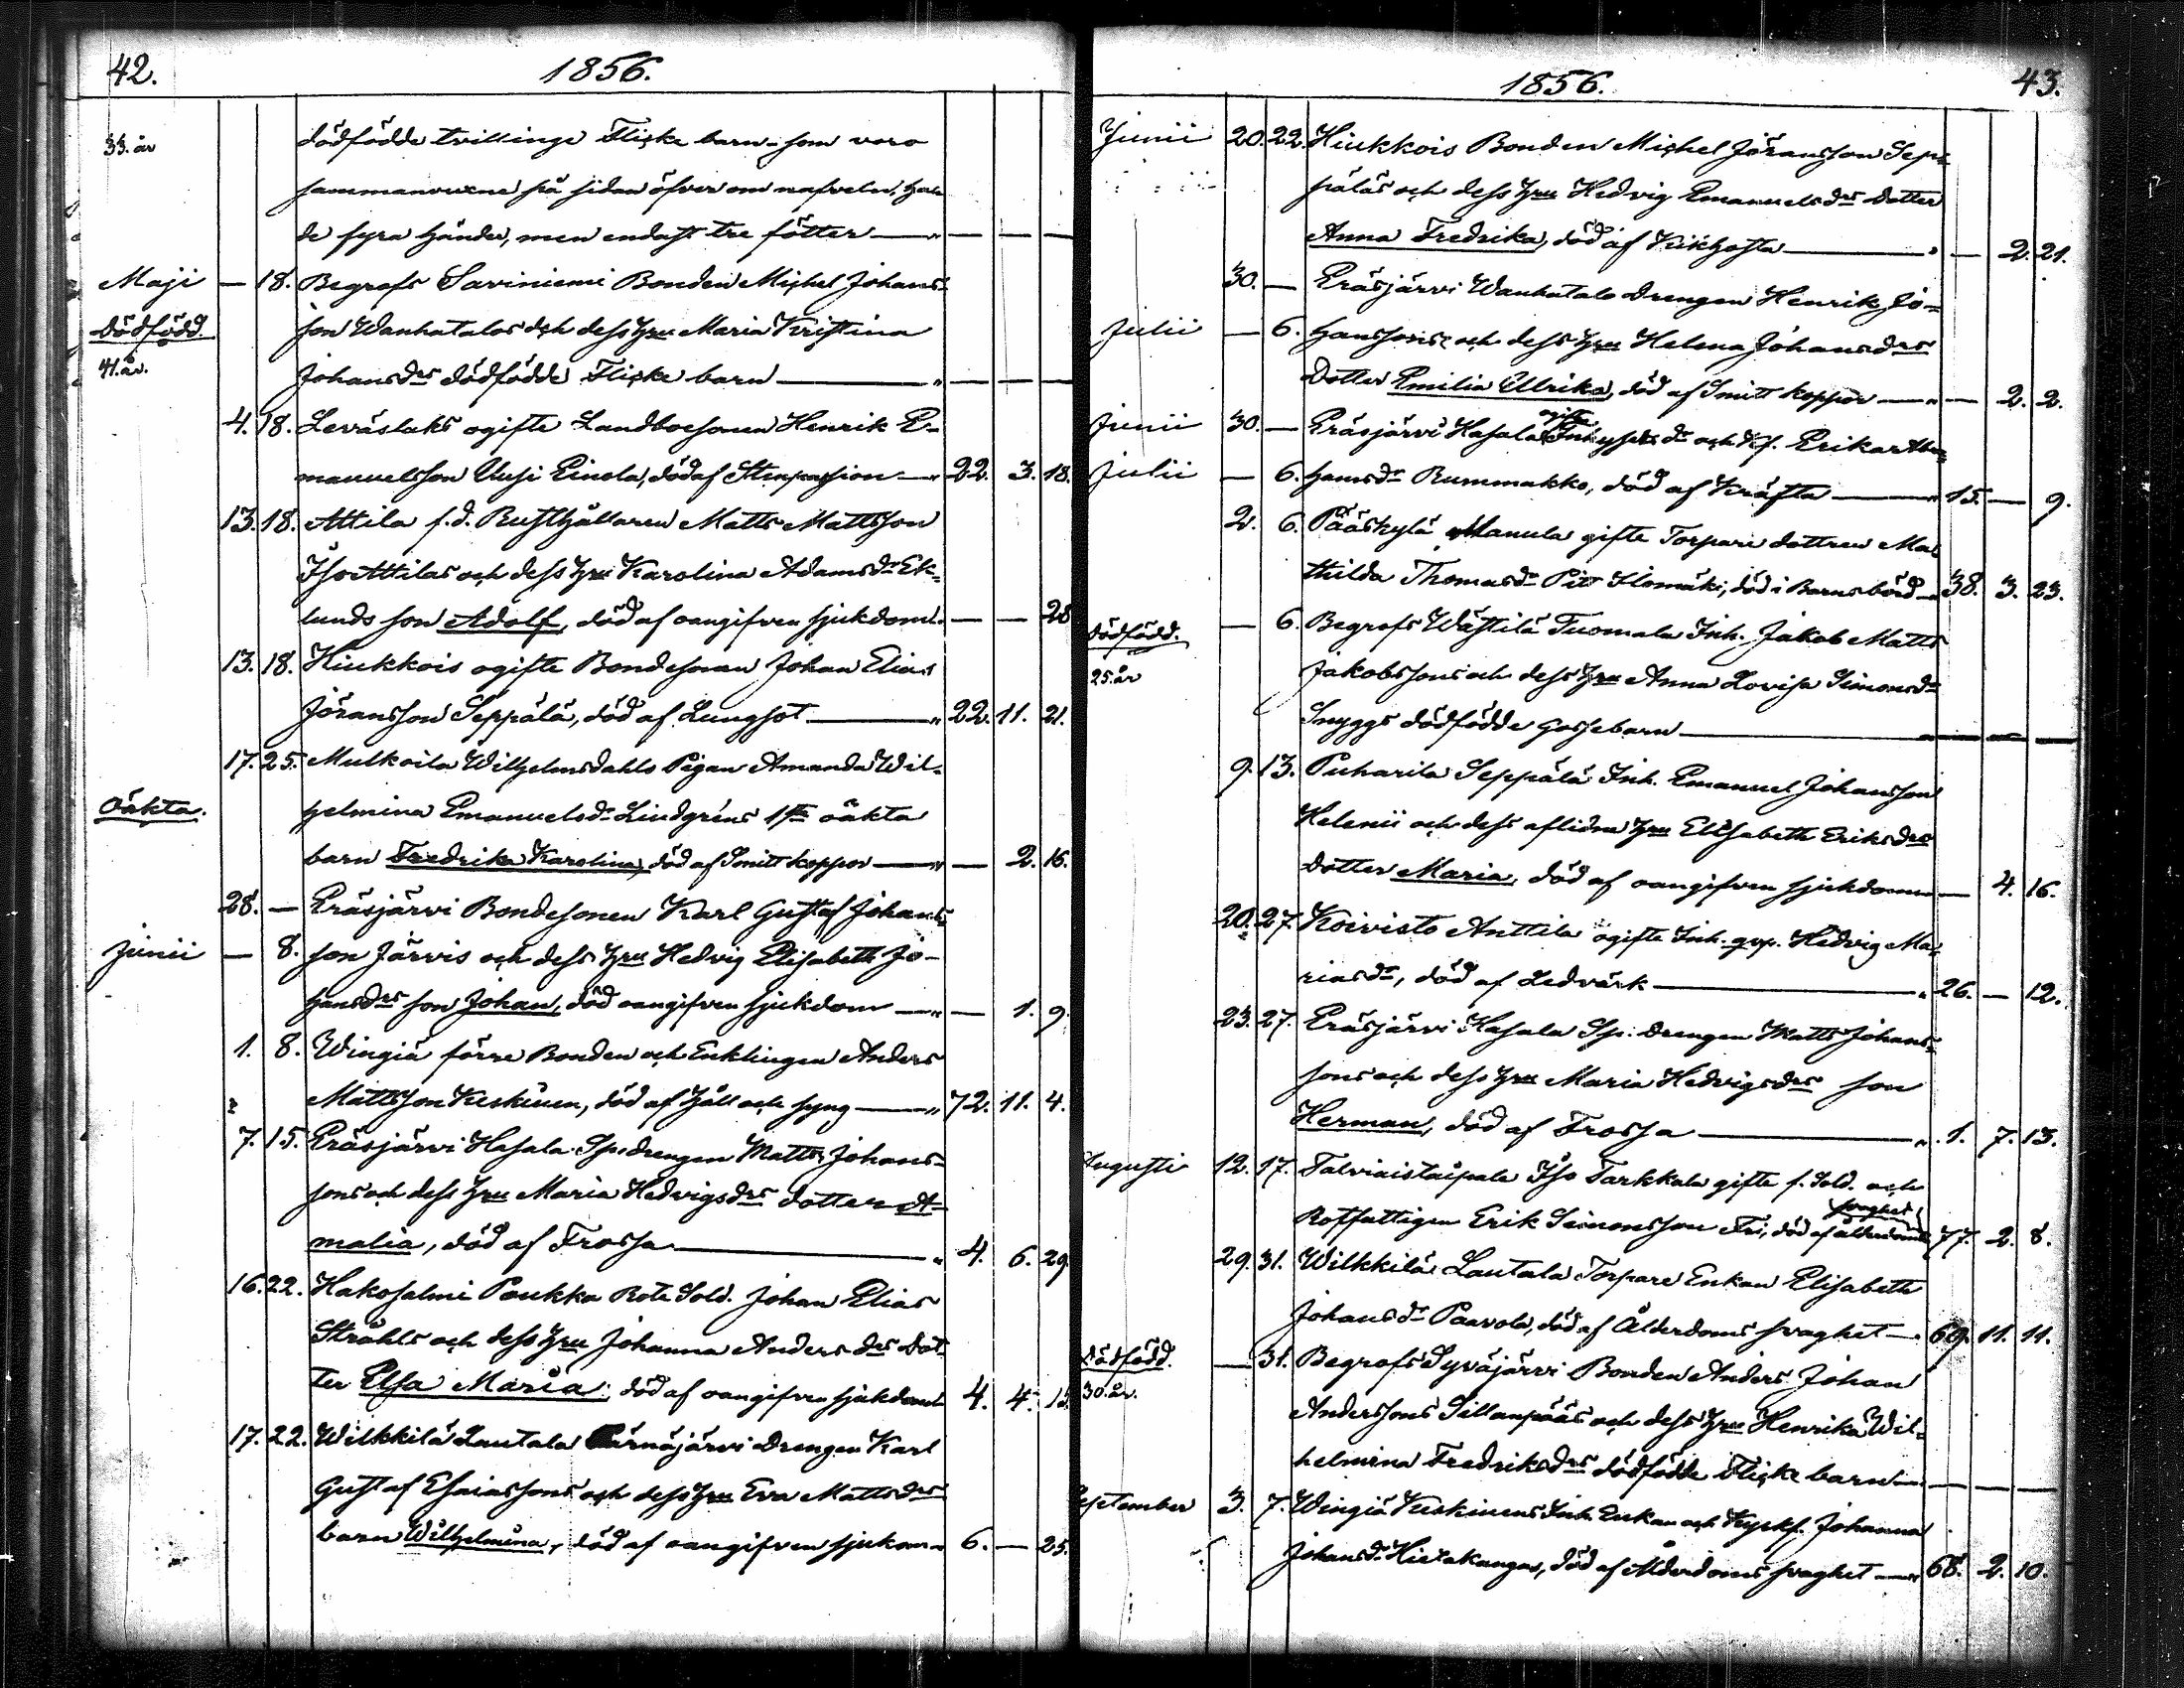 42. 1856.
33. år dödfödde tvillinge Flicke barn som voro
sammanvuxne på sidan öfver om nafveln, had
de fyra händer, men endast tre fötter — „ — — —
Maji — 18. Begrofs Saviniemi Bonden Michel Johans-
Dödfödd. son Wanhatalos och dess hru Maria Kristina
41. år. Johansdrs dödfödde Flicke barn — „ — — —
4. 18. Leväslaks ogifte Landboesonen Henrik E-
manuelsson Uusi Einola, död af — „ 22. 3. 18.
13. 18. Attila f.d. Rusthållaren Matts Mattsson
Iso Attilas och dess hru Karolina Adamsdr Ek-
lunds son Adolf, död af oangifven sjukdom „ — — 28
13. 18. Hiukkois ogifte Bondesonen Johan Elias
Jöransson Seppälä, död af Lungsot — „ 22. 11. 21.
17. 25. Mulkoila Wilhelmsdahls Pigan Amanda Wil-
Oäkta. helmina Emanuelsdr Lindgréns 1sta oäkta
barn Fredrika Karolina, död af Smitt koppor — „ — 2. 16.
28. — Eräsjärvi Bondesonen Karl Gustaf Johans-
Junii — 8. son Järvis och dess hru Hedvig Elisabeth Jo-
hansdrs son Johan, död oangifven sjukdom — „ — 1. 9.
1. 8. Wingiä förre Bonden och Enklingen Anders
Mattsson Keskinen, död af håll och styng — „ 72. 11. 4.
7. 15. Eräsjärvi Hasala Sp. drengen Matts Johans-
sons och dess hru Maria Hedvigsdrs dotter A-
malia, död af Frossa — „ 4. 6. 29
16. 22. Hakosalmi Poukka Rote Sold. Johan Elias
Stråhls och dess hru Johanna Andersdrs dot-
ter Elsa Maria, död af oangifven sjukdom 4. 4. 15.
17. 22. Wilkkilä Lautala Särnäjärvi Drengen Karl
Gustaf Esaiassons och dess hru Eva Mattsdrs
barn Wilhelmina, död af oangifven sjukom „ 6. — 25.
1856. 43.
Junii 20. 22. Hiukkois Bonden Michel Jöransson Sep-
päläs och dess hru Hedvig Emanuelsdrs dotter
Anna Fredrika, död af Kikhosta — „ — 2. 21.
30. — Eräsjärvi Wanhatalo Drengen Henrik Jo-
Julii — 6. hanssons och dess hru Helena Johansdrs
Dotter Emilia Ulrika, död af Smitt koppor — „ — 2. 2.
Junii 30. — Eräsjärvi Hasala ogifta Inhyses dr och Kf. Erika
Julii — 6. hamsdr Rummakko, död af Kräfta — „ 15. — 9.
2. 6. Pääskylä Manula gifte Torpare dottren Mat
thilda Thomasdr Pitt Ilomäki, död i Barnsbörd „ 38. 3. 23.
Dödfödd. — 6. Begrofs Wästilä Tuomala Inh. Jakob Matts
25. år Jakobssons och dess hru Anna Lovisa Simonsdr
Snyggs dödfödde gossebarn — — —
9. 13. Puharila Seppälä Inh. Emanuel Johansson
Helenii och dess aflidna hru Elisabeth Eriksdrs
dotter Maria, död af oangifven sjukdom — 4. 16.
20. 27. Koivisto Anttila ogifte Inh. qvp. Hedvig Ma-
riasdr, död af Ledvärk — „ 26. — 12.
23. 27. Eräsjärvi Hasala Sp. drengen Matts Johans-
sons och dess hru Maria Hedvigsdrs son
Herman, död af Frossa — „ 1. 7. 13.
Augusti 12. 17. Talviaistaipale Iso Tarkkala gifte f. Sold. och
Rotfattigen Erik Simonsson Fri, död af ålderdoms svaghet 77. 2. 8.
29. 31. Wilkkilä Lautala Torpare Enkan Elisabeth
Johansdr Paavola, död af Ålderdoms svaghet — „ 69. 11. 11.
Dödfödd. — 31. Begrofs Syväjärvi Bonden Anders Johan
30. år. Anderssons Sillanpääs och dess hru Henrika Wil-
helmina Fredriksdrs dödfödde Flicke barn — — — —
September 3. 7. Wingiä Keskinens Inh. Enkan och Kyrkf. Johanna
Johansdr Hietakangas, död af Ålderdoms svaghet — „ 68. 2. 10.